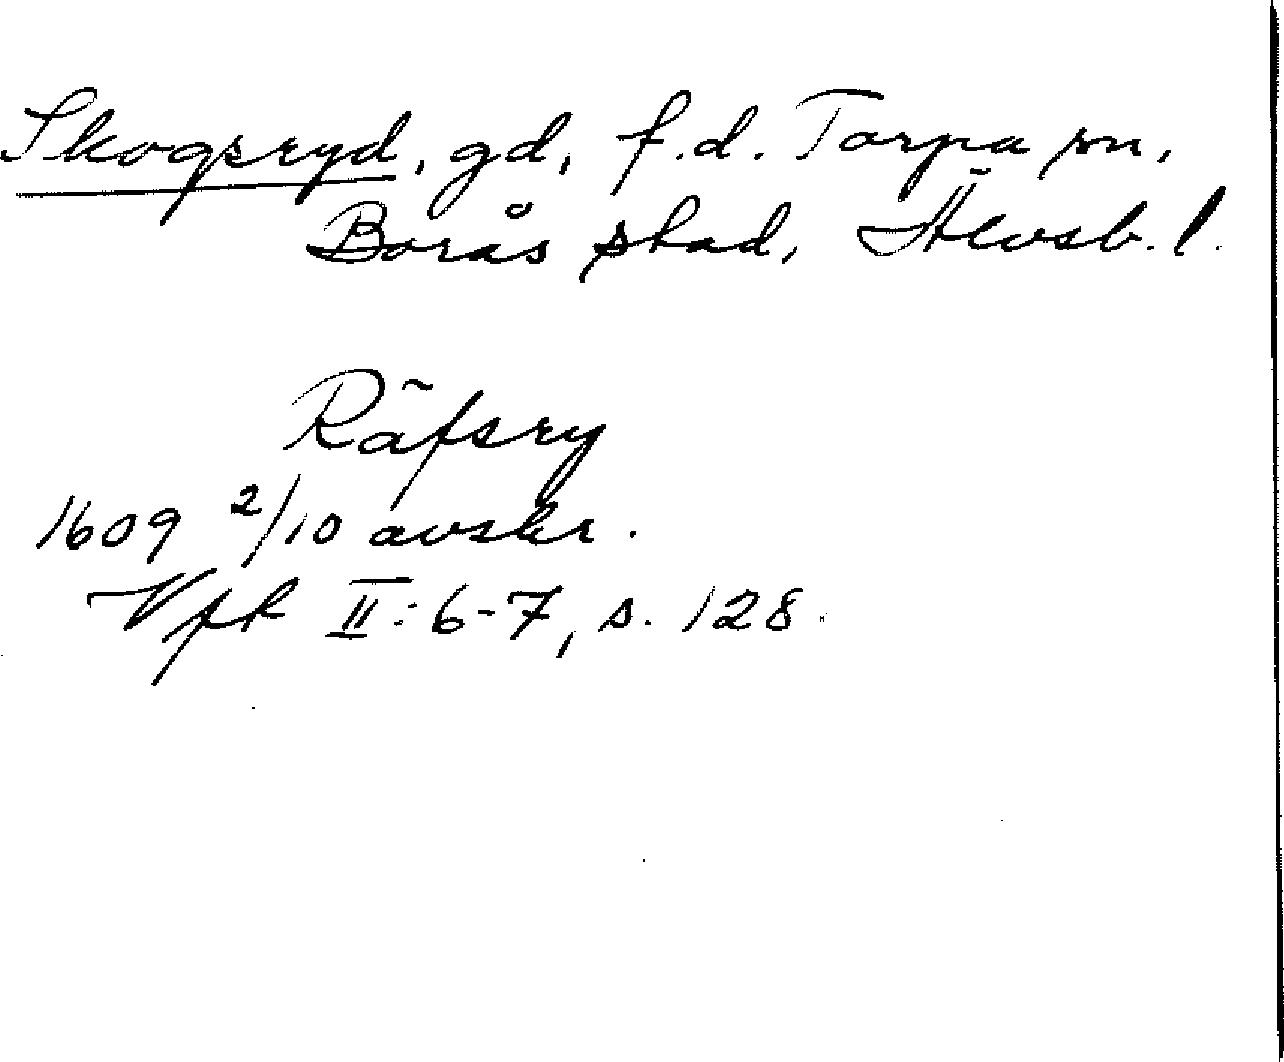 Skogsryd, gd, f.d. Torpa sn,
Borås stad, Älvsb. l.
Räfsry
1609 2/10 avskr.
Vfk II: 6-7, s. 128.